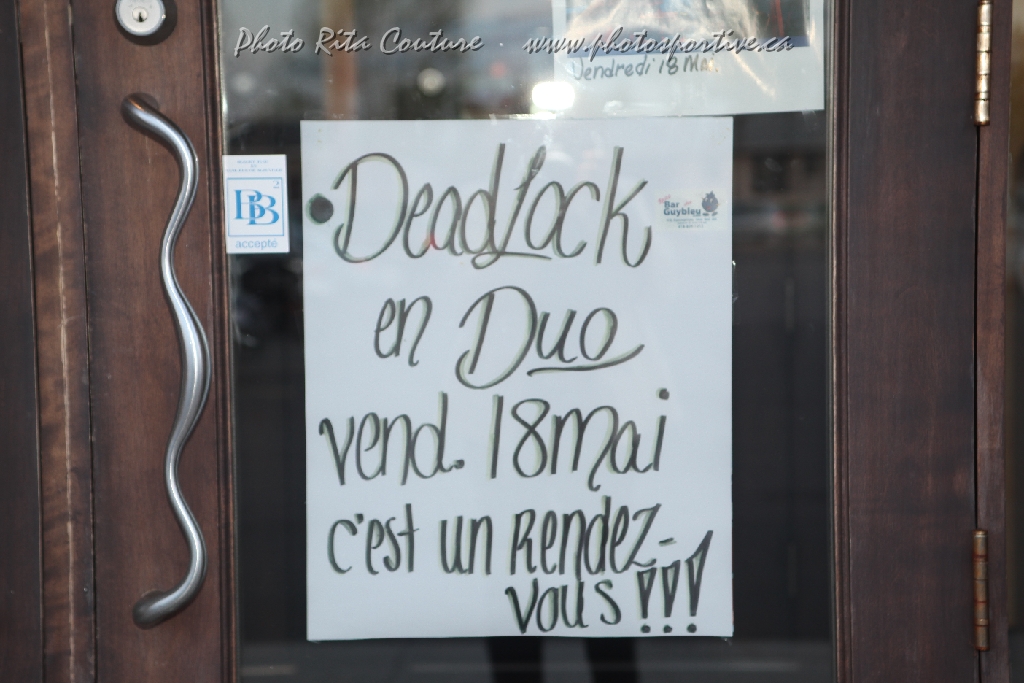 Photo Rita Couture · www.photosportive.ca
Vendredi 18 Mai
BB
accepté
Bar
Guybleu
DeadLock
en Duo
vend. 18 mai
c'est un Rendez-
vous !!!